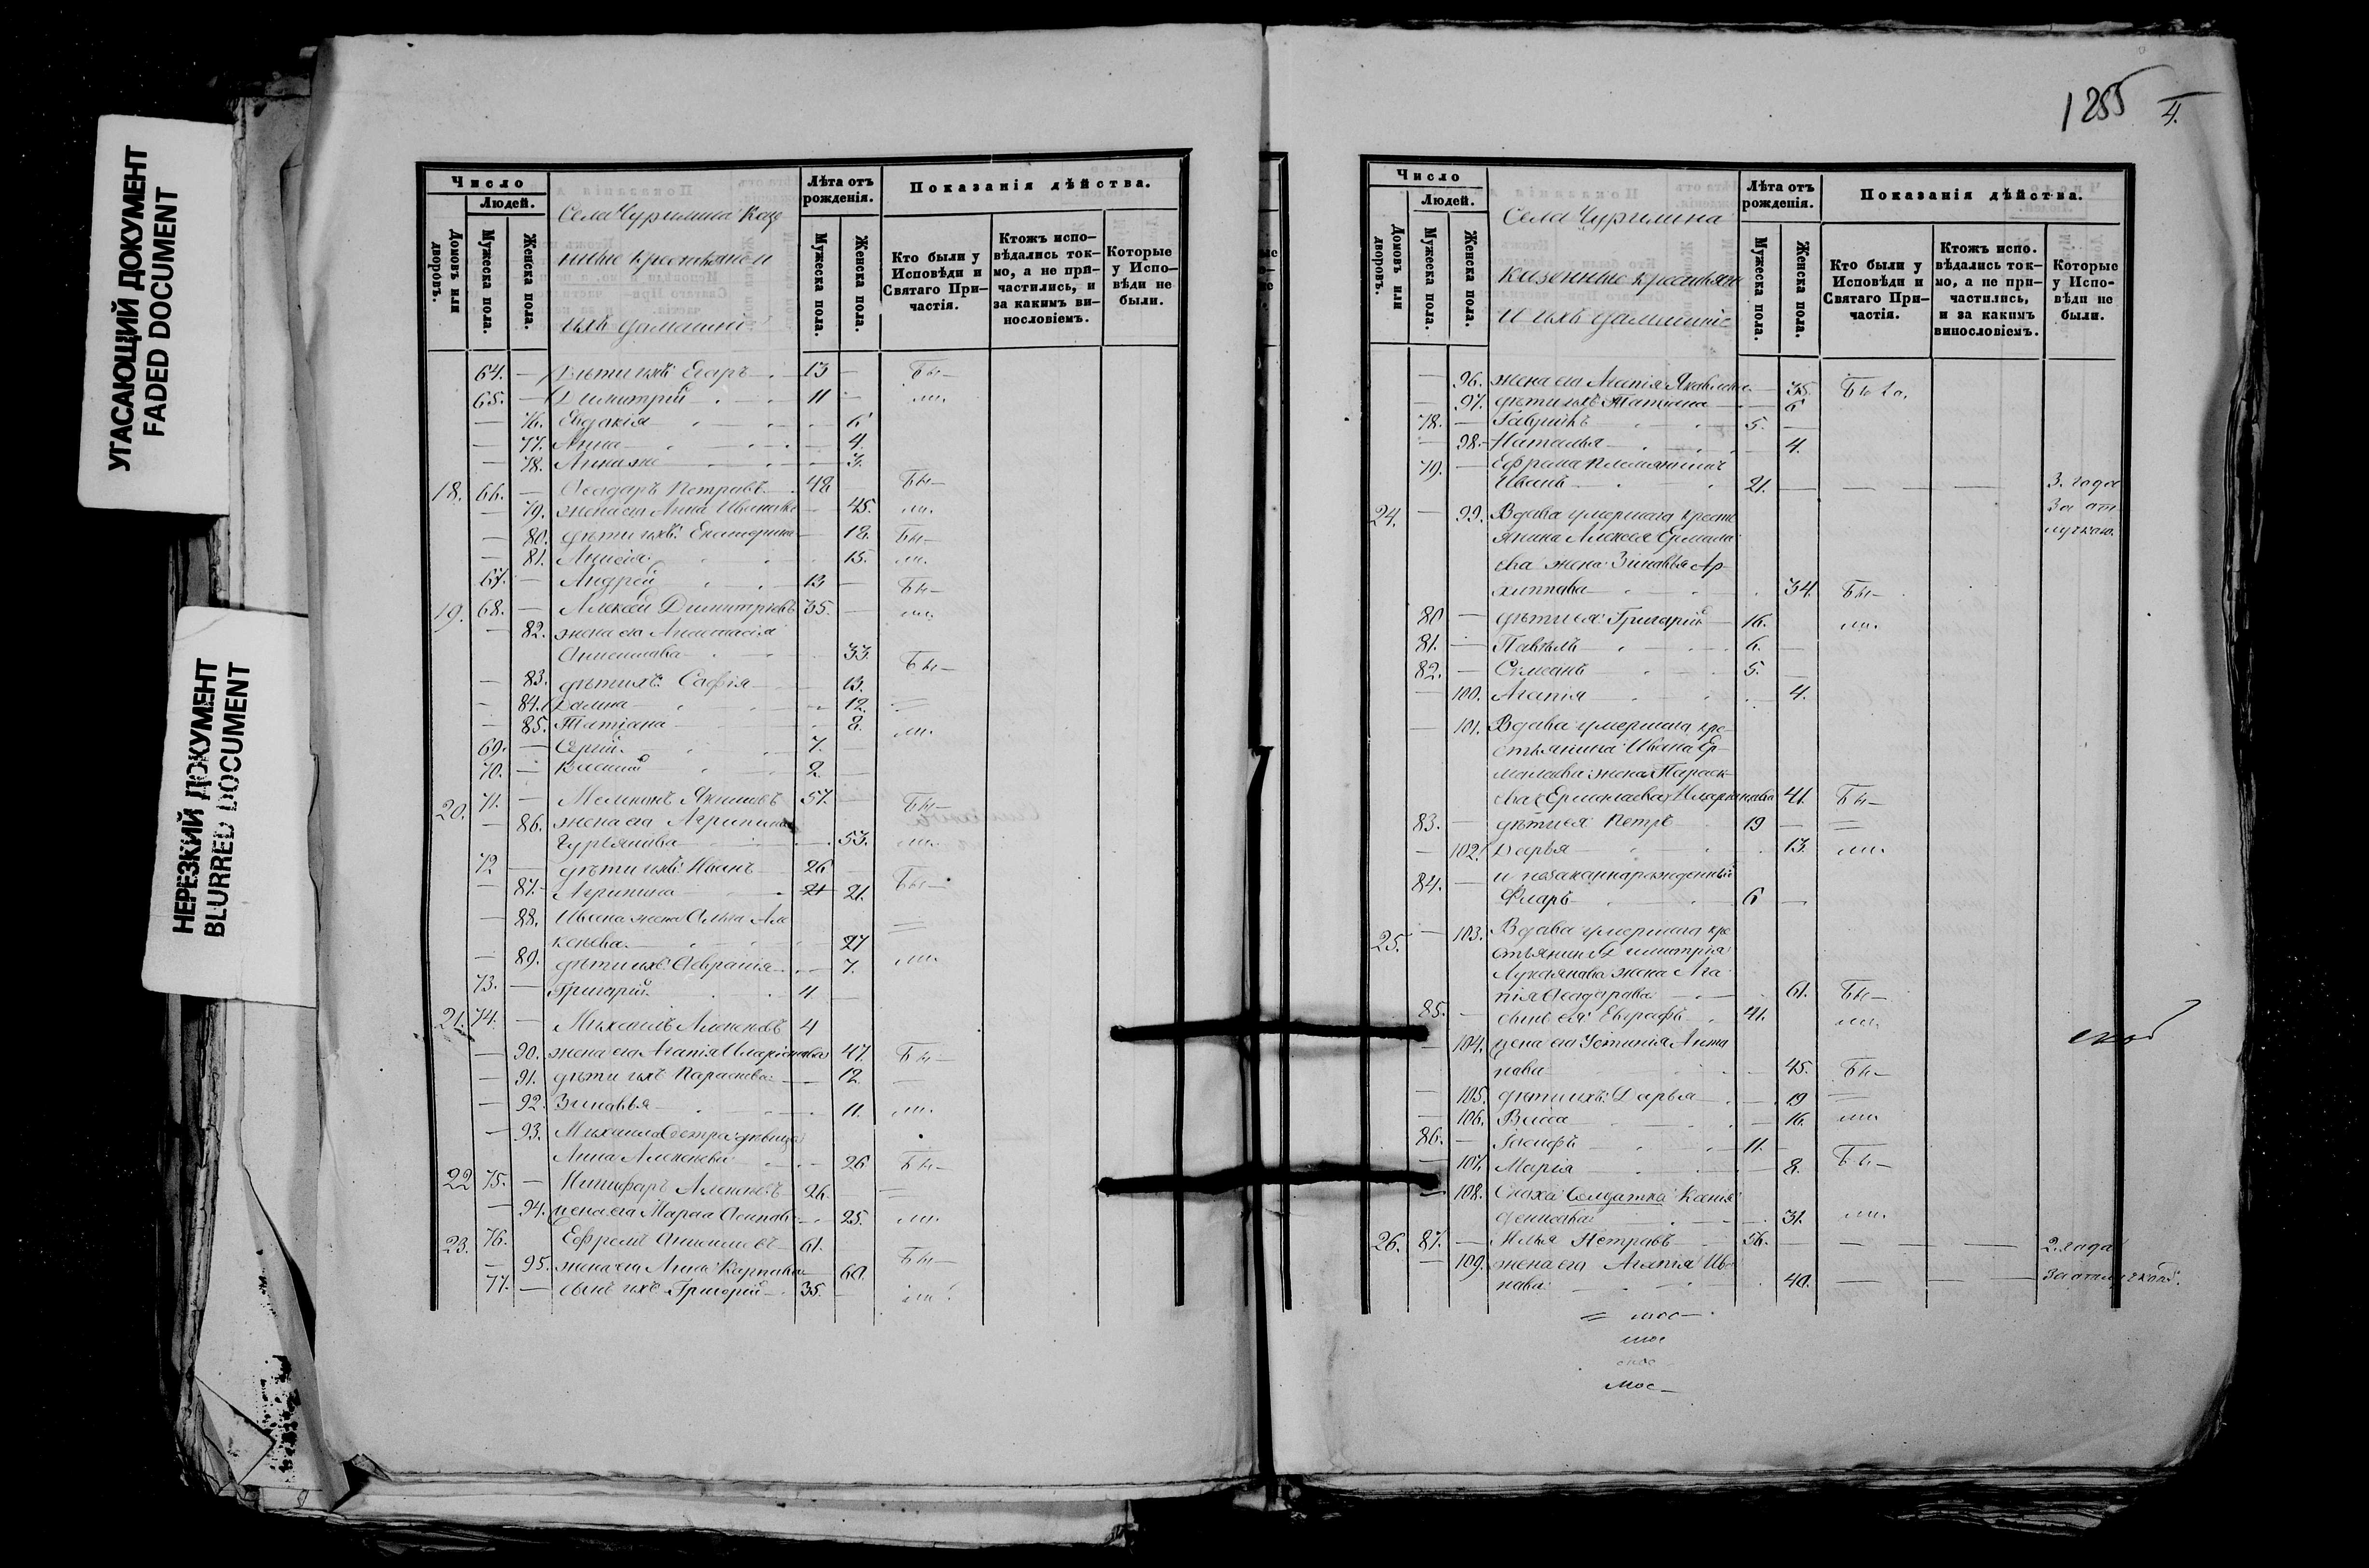 УГАСАЮЩИЙ ДОКУМЕНТ
FADED DOCUMENT
НЕРЕЗКИЙ ДОКУМЕНТ
BLURRED DOCUMENT
Число
Людей.
Домовъ или дворовъ.
Мужеска пола.
Женска пола.
Села Чурилина Казе
нные крестьяне и
ихъ домашніе
Лѣта отъ рожденія.
Мужеска пола.
Женска пола.
Показанія дѣйства.
Кто были у Исповѣди и Святаго При-частія.
Ктожъ испо-вѣдались ток-мо, а не при-частились, и за какимъ ви-нословіемъ.
Которые у Испо-вѣди не были.
64. — Дѣти ихъ: Егоръ 13 — Бы—
65. — Димитрій 11 — ли.
— 76. Евдокія 6
— 77. Анна 4.
— 78. Анна же 3.
18. 66. — Ѳеодоръ Петровъ 48 Бы—
— 79. жена его Анна Иванова 45. ли.
— 80. дѣти ихъ: Екатерина 18. Бы—
— 81. Анисія 15. ли.
67. — Андрей 13 — Бы—
19. 68. — Алексей Димитріевъ 35. — ли.
— 82. жена его Анастасія
Анисимова 33. Бы—
— 83. дѣти ихъ: Софія 13.
— 84. Домна 12. =
— 85. Татіана 8. ли.
69. — Сергій 7. —
70. — Василій 2 —
20. 71. — Меликонъ Якимовъ 57. — Бы—
— 86. жена его Агрипина
Гурьянова 53. ли.
72 — дѣти ихъ: Иванъ 26 —
— 87. Агрипина 21. Бы—
— 88. Ивана жена Ольга Але
ксеева 27 =
— 89. дѣти ихъ: Евгранія 7. ли.
73. — Григорій 4 —
21. 74. — Михаилъ Алексеевъ 4
— 90. жена его Агапія Иларіонова 47. Бы—
— 91. дѣти ихъ Параскева 12. —
— 92. Зиновья 11. ли.
— 93. Михаила сестра дѣвица
Анна Алексеева 26 Бы—
22 75. — Никифоръ Алексеевъ 26. — =
— 94. жена его Марѳа Осипова 25. ли.
23. 76. Ефремъ Анисимовъ 61. —
— 95. жена его Анна Карпова 60. Бы—
77. — сынъ ихъ Григорій 35. — ли.
1255 4.
Число
Людей.
Домовъ или дворовъ.
Мужеска пола.
Женска пола.
Села Чурилина
казенные крестьяне
и ихъ домашніе
Лѣта отъ рожденія.
Мужеска пола.
Женска пола.
Показанія дѣйства.
Кто были у Исповѣди и Святаго При-частія.
Ктожъ испо-вѣдались ток-мо, а не при-частились, и за какимъ винословіемъ.
Которые у Испо-вѣди не были.
— 96. жена его Агапія Яковлева 35. Была,
— 97. дѣти ихъ Татіана 6
78. — Гавріилъ 5. —
— 98. Наталья 4.
79. — Ефрема племянникъ
Иванъ 21. — — — 3. года
24. — 99. Вдова умершаго кресть За от
янина Алексея Ермола лучкою.
ева жена Зиновья Ар-
хиппова 34. Бы—
80 — дѣти ея: Григорій 16. ли.
81. — Павелъ 6. —
82. — Симеонъ 5. —
— 100. Агапія 4.
— 101. Вдова умершаго кре
стьянина Ивана Ер-
молаева жена Параск-
ева Ермолаева Иларіонова 41. Бы—
83. — дѣти ея Петръ 19 — =
— 102. Дарья 13. ли.
84. — и незаконнорожденный
Флоръ 6 —
25. — 103. Вдова умершаго кре
стьянина Димитрія
Лукоянова жена Ага
пія Ѳеодорова 61. Бы—
85. — сынъ ея Евграфъ 41. ли.
— 104. жена его Устинія Анто
нова 45. Бы—
— 105. дѣти ихъ: Дарья 19 =
— 106. Васса 16. ли
86. — Іосифъ 11. —
— 107. Марія 8. Бы—
— 108. Сноха Солдатка Ксенія
Денисова 31. ли.
26. 87. — Илья Петровъ 56. — — — 2. года
— 109. жена его Агапія Ива
нова 40. — — за отлучкою.